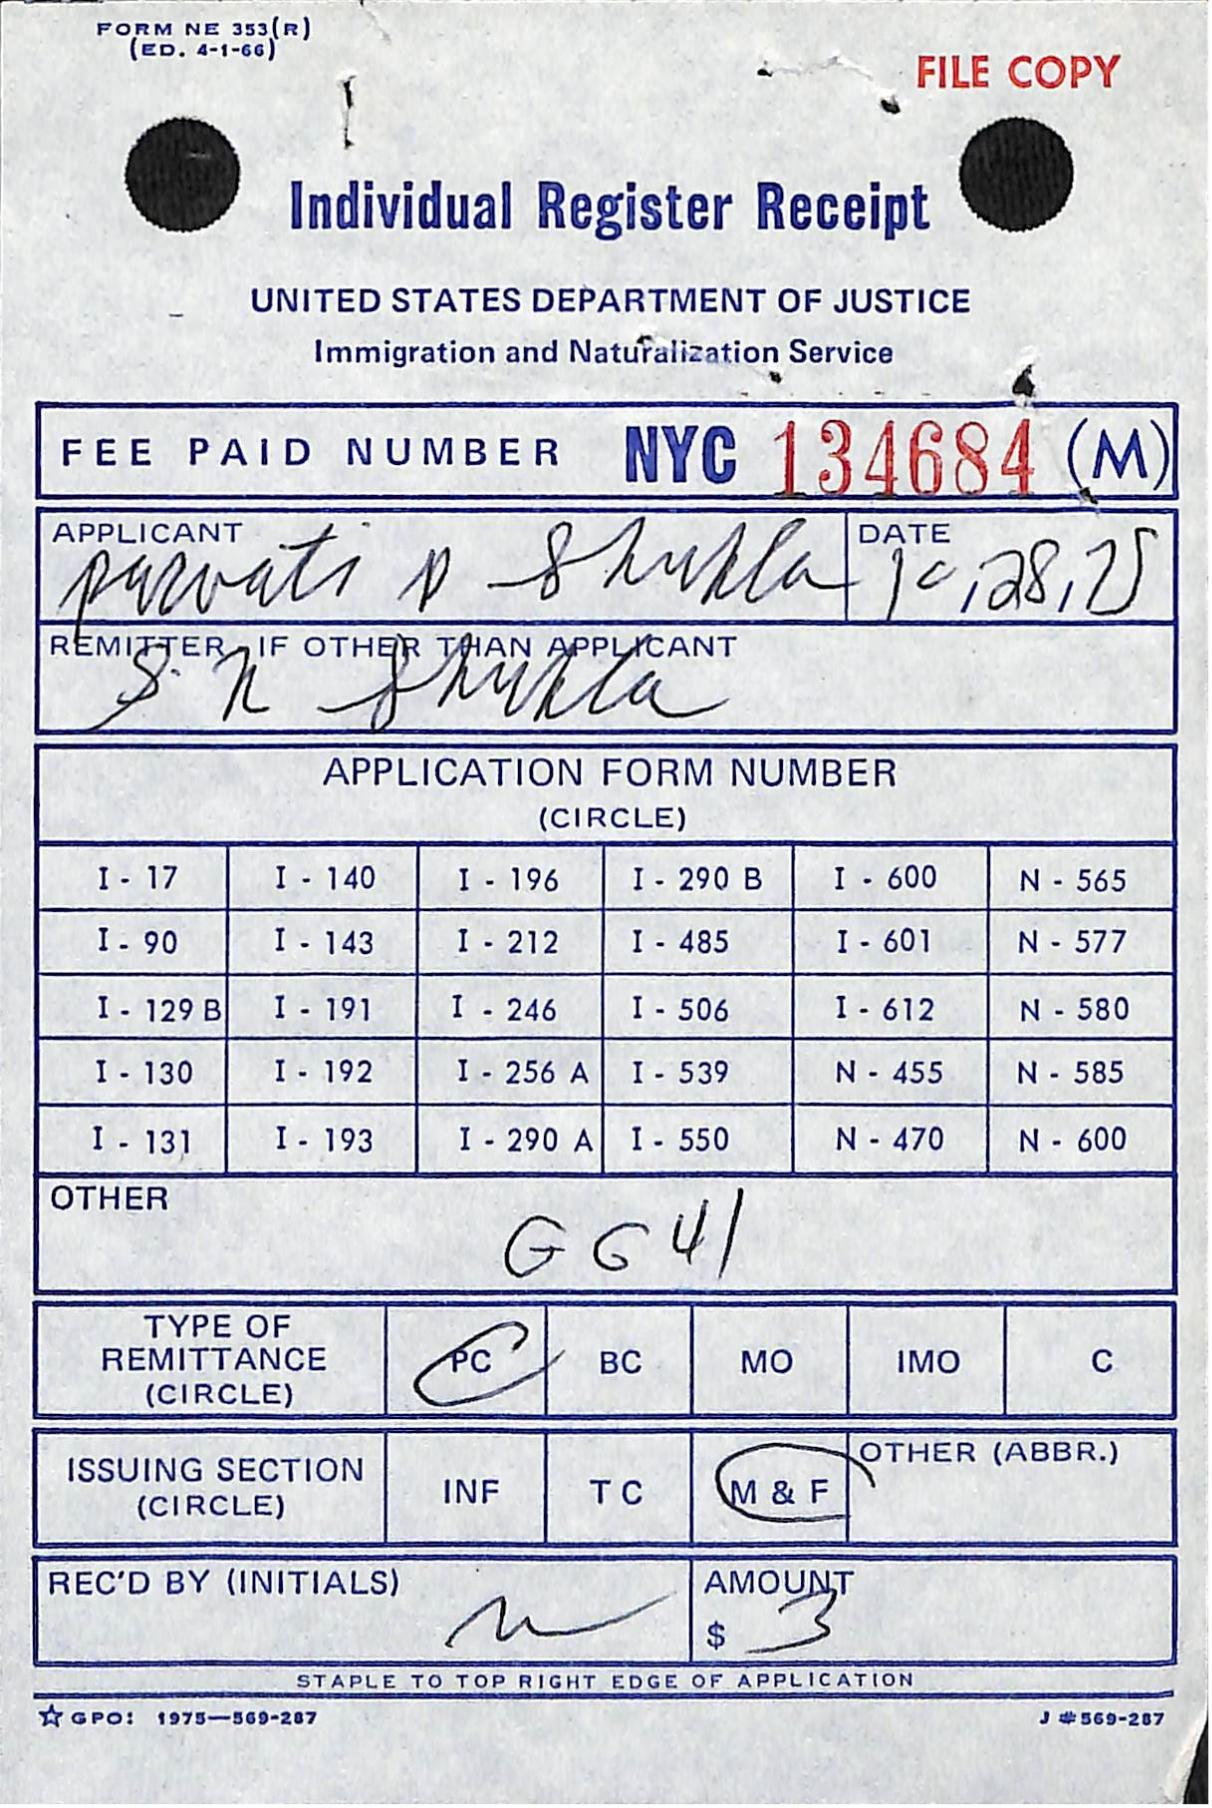 FORM NE 353(R)
(ED. 4-1-66)
FILE COPY
Individual Register Receipt
UNITED STATES DEPARTMENT OF JUSTICE
Immigration and Naturalization Service
FEE PAID NUMBER NYC 134684 (M)
APPLICANT DATE
parvati D Shukla 10,28,75
REMITTER, IF OTHER THAN APPLICANT
S. N Shukla
APPLICATION FORM NUMBER
(CIRCLE)
I - 17 I - 140 I - 196 I - 290 B I - 600 N - 565
I - 90 I - 143 I - 212 I - 485 I - 601 N - 577
I - 129 B I - 191 I - 246 I - 506 I - 612 N - 580
I - 130 I - 192 I - 256 A I - 539 N - 455 N - 585
I - 131 I - 193 I - 290 A I - 550 N - 470 N - 600
OTHER
G G41
TYPE OF
REMITTANCE
(CIRCLE)
PC BC MO IMO C
ISSUING SECTION
(CIRCLE)
INF TC M & F OTHER (ABBR.)
REC'D BY (INITIALS) AMOUNT
$ 3
STAPLE TO TOP RIGHT EDGE OF APPLICATION
☆ GPO: 1975—569-287 J #569-287